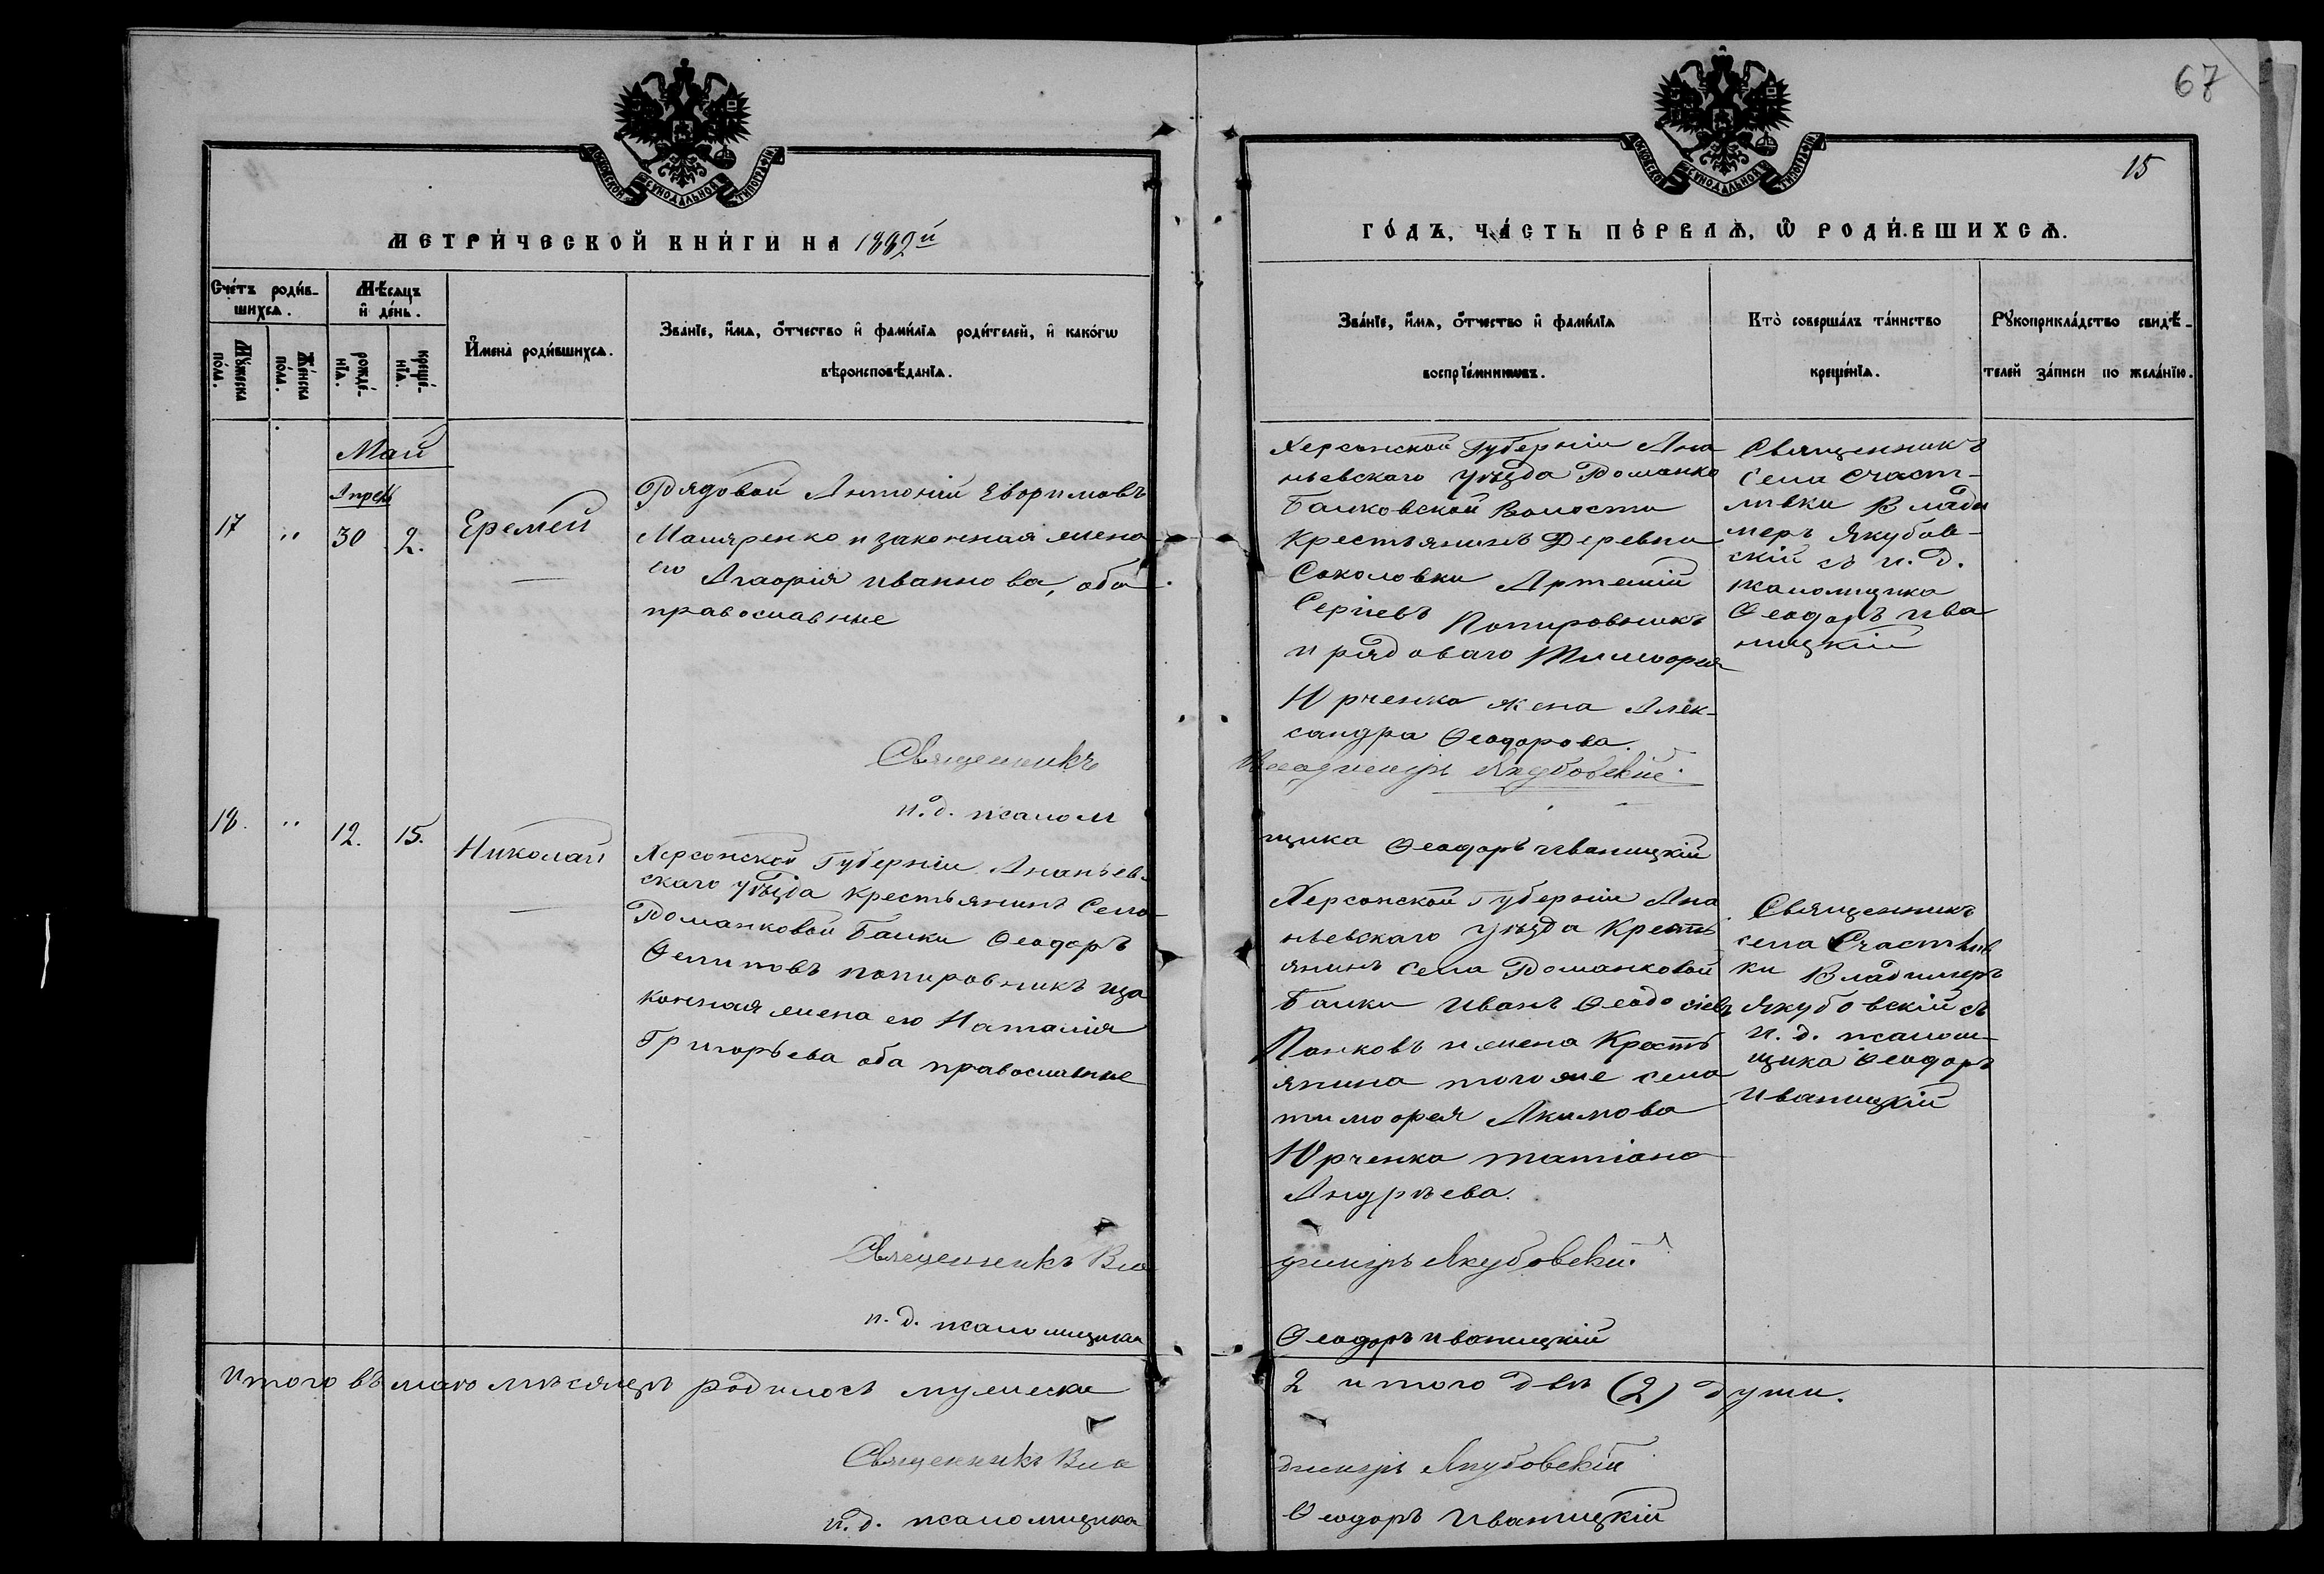 67
15
МОСКОВСКОЙ СѴНОДАЛЬНОЙ ТИПОГРАФІИ
МОСКОВСКОЙ СѴНОДАЛЬНОЙ ТИПОГРАФІИ
МЕТРИ́ЧЕСКОЙ КНИ́ГИ НА 1882й
ГО́ДЪ, ЧА́СТЬ ПЕ́РВАѦ, Ѿ РОДИ́ВШИХСѦ.
Сче́тъ роди́в-
шихсѧ.
Мѣ́сѧцъ
и҆ де́нь.
Мꙋ́жеска
по́ла.
Же́нска
по́ла.
рожде́-
нїѧ.
креще́-
нїѧ.
И҆мена̀ роди́вшихсѧ.
Зва́нїе, и҆́мѧ, ѻ҆́тчество и҆ фами́лїѧ роди́телей, и҆ како́гѡ
вѣроисповѣ́данїѧ.
Зва́нїе, и҆́мѧ, ѻ҆́тчество и҆ фами́лїѧ
воспрїе́мниковъ.
Кто̀ соверша́лъ та́инство
креще́нїѧ.
Рꙋкоприкла́дство свидѣ́-
телей за́писи по жела́нїю.
Май
Апрель
17 " 30 2. Еремей
Рядовой Антоній Евфимовъ
Маляренко и законная жена
его Агафія Иваннова, оба
православные
Херсонской Губерніи Ана
ньевскаго уѣзда Доманко
Балковской Волости
Крестьянинъ Деревни
Соколовки Артемій
Сергіевъ Попировникъ
и рядоваго Тимофея
Юрченка жена Алек-
сандра Ѳеодорова.
Священникъ
села Счаст-
ливки Влади
меръ Якубов-
скій съ и. д.
псаломщика
Ѳеодоръ Ива
ницкій
Священникъ Владимиръ Якубовскій.
и. д. псалом щика Ѳеодоръ Иваницкій
18. " 12. 15. Николай
Херсонской Губерніи Ананьев-
скаго уѣзда крестьянинъ Села
Доманковой Балки Ѳеодоръ
Филиповъ попировникъ иза
конная жена его Наталія
Григорьева оба православные
Херсонской Губерніи Ана
ньевскаго уѣзда Кресть
янинъ села Доманковой
Балки Иванъ Ѳеодосіевъ
Панковъ и жена Кресть
янина того же села
тимофея Акимова
Юрченка татіана
Андрѣева.
Священникъ
села Счастлив
ки Владимеръ
Якубовскій съ
и. д. псалом-
щика Ѳеодоръ
Иваницкій
Священникъ Вла димиръ Якубовскій
и. д. псаломщика Ѳеодоръ Иваницкій
Итого въ маю мѣсяцѣ родилось мужеска 2 итого двѣ (2) души.
Священникъ Вла димиръ Якубовскій
и. д. псаломщика Ѳеодоръ Иваницкій